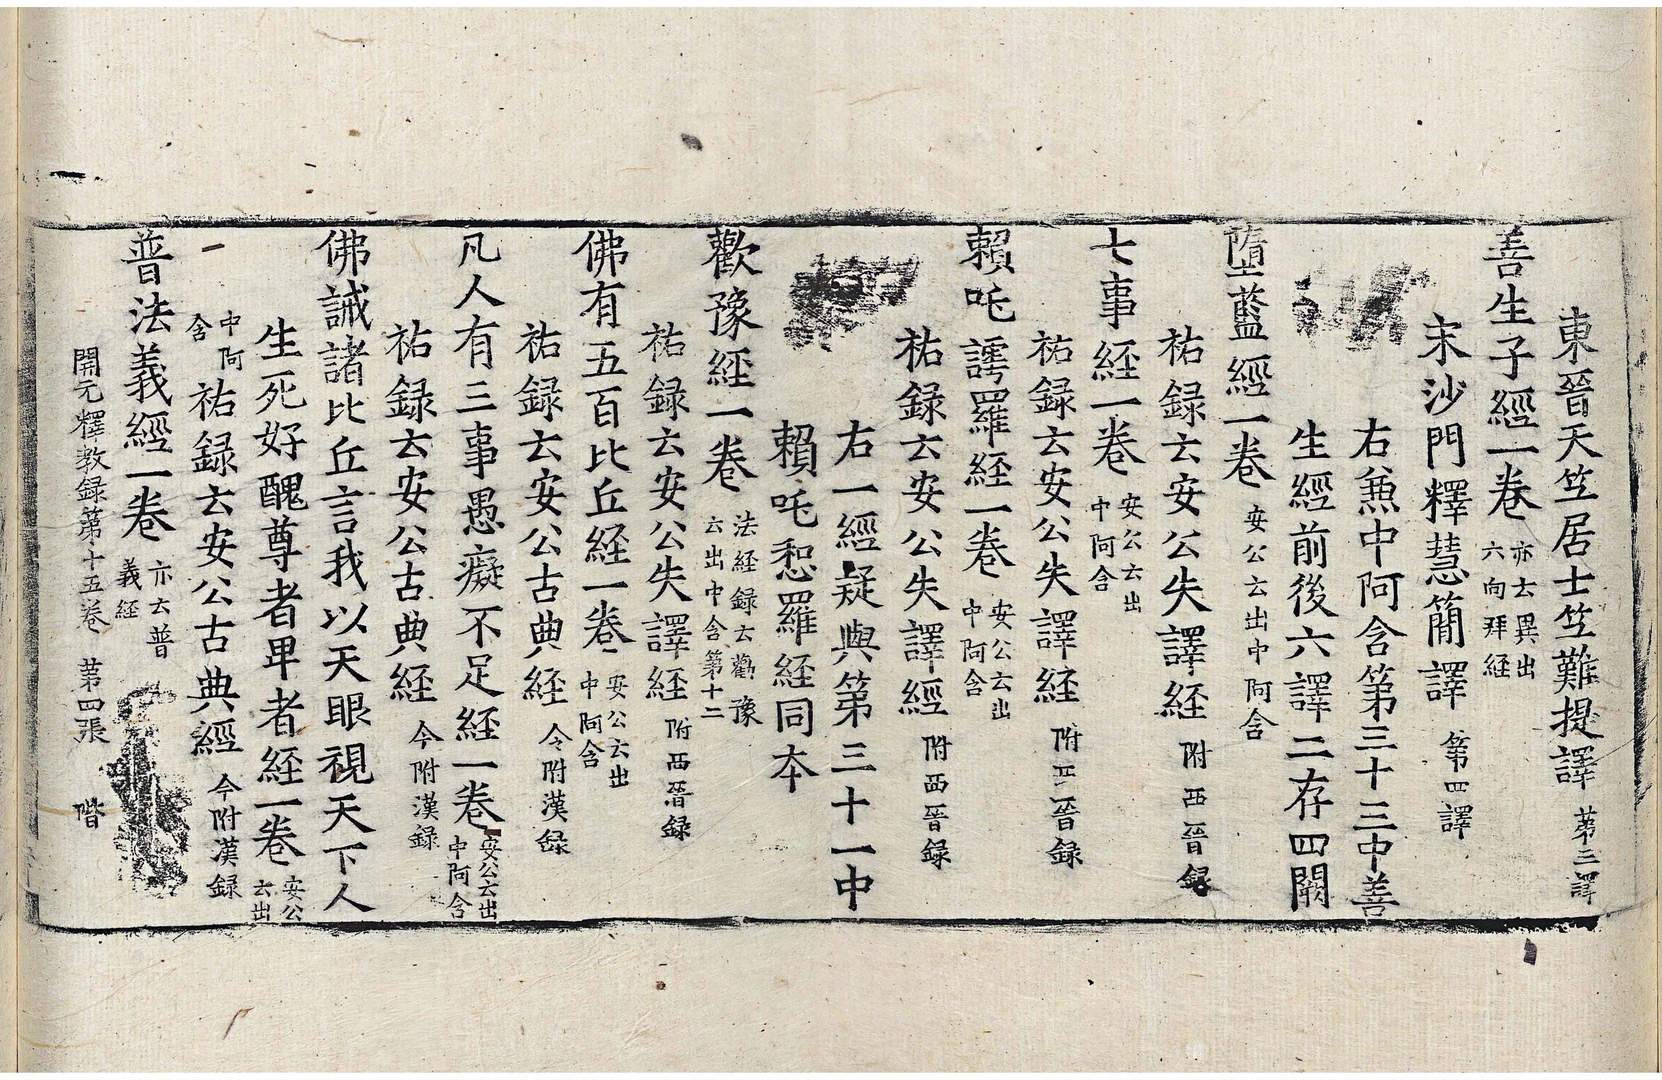 東晉天笁居士笁難提譯 第三譯
善生子經一巻 亦云異出六向拜經
宋沙門釋慧簡譯 第四譯
右𠔥中阿含第三十三中善
生經前後六譯二存四闕
墮藍經一巻 安公云出中阿含
祐録云安公失譯経 附西晉録
七事経一巻 安公云出中阿含
祐録云安公失譯経 附西晉録
賴吒謣羅経一巻 安公云出中阿含
祐録云安公失譯經 附西晉録
右一經疑與第三十一中
賴吒惒羅経同夲
歡豫經一巻 法経録云勸豫云出中含第十二
祐録云安公失譯経 附西晉録
佛有五百比丘経一巻 安公云出中阿含
祐録云安公古典経 今附漢録
凡人有三事愚癡不足経一巻 安公云出中阿含
祐録云安公古典経 今附漢録
佛誡諸比丘言我以天眼視天下人
生死好醜尊者卑者経一巻 安公云出
中阿含 祐録云安公古典經 今附漢録
普法義經一巻 亦云普義経
開元釋教録第十五巻 第四張 階